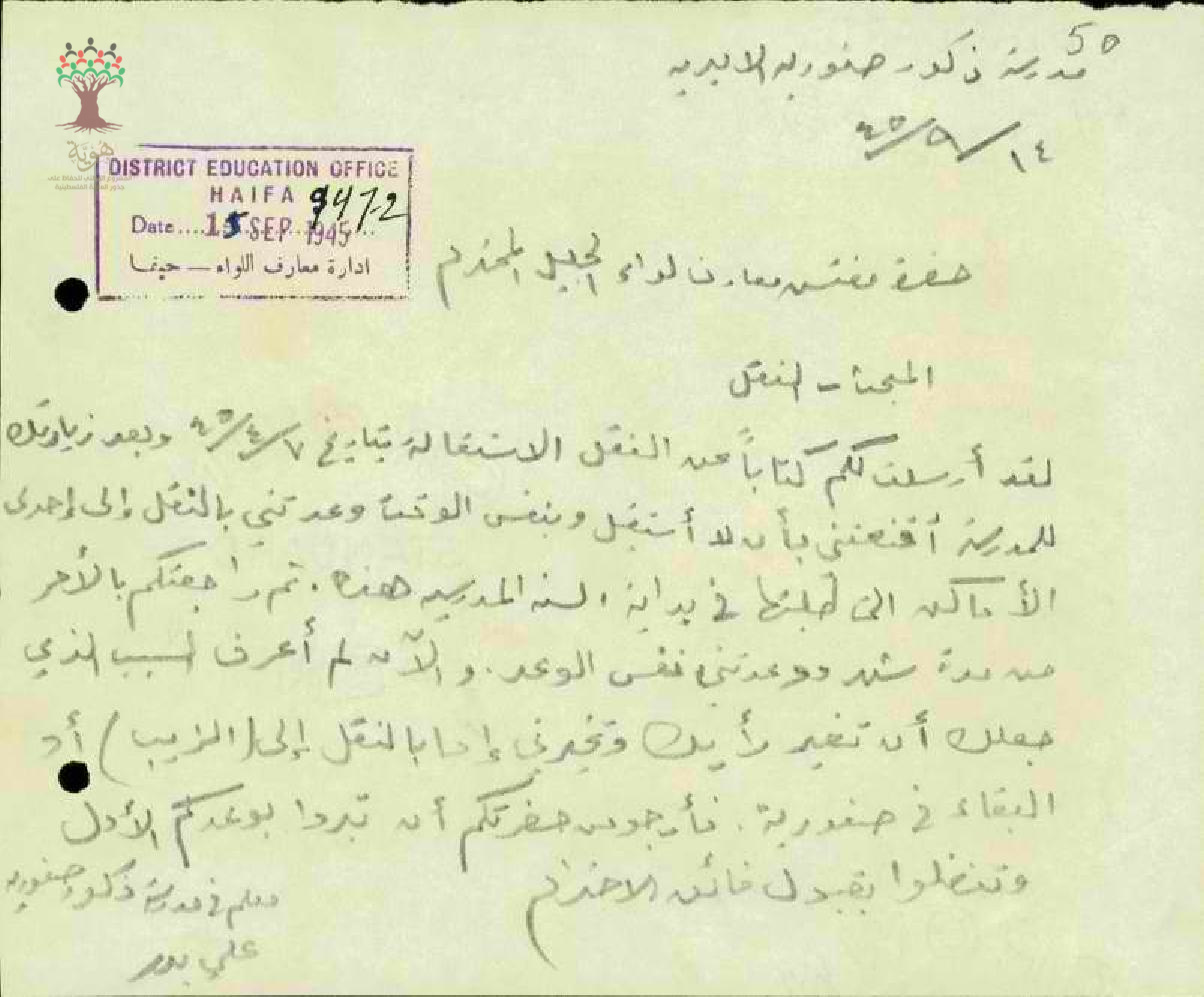 50
مدرسة ذكور صفوريه الاميريه
١٤/٩/٤٥
هوية
DISTRICT EDUCATION OFFICE
HAIFA 9472
Date....15 SEP 1945...
ادارة معارف اللواء — حيفا
حضرة مفتش معارف لواء الجليل المحترم
المبحث - النقل
لقد أرسلت لكم كتاباً عن النقل الاستقالة بتاريخ ٧/٤/٤٥ وبعد زيارتك
للمدرسة أقنعتني بأن لا أستقيل وبنفس الوقت وعدتني بالنقل إلى إحدى
الأماكن التي طلبتها في بداية السنه المدرسيه هذه. ثم راجعتكم بالأمر
من مدة شهر ووعدتني نفس الوعد. والآن لم أعرف السبب الذي
جعلك أن تغير رأيك وتخيرني إما بالنقل إلى (الزيب) أو
البقاء في صفورية. فأرجو من حضرتكم أن تبروا بوعدكم الأول
وتفضلوا بقبول فائق الاحترام
معلم في مدرسة ذكور صفوريه
علي بدر